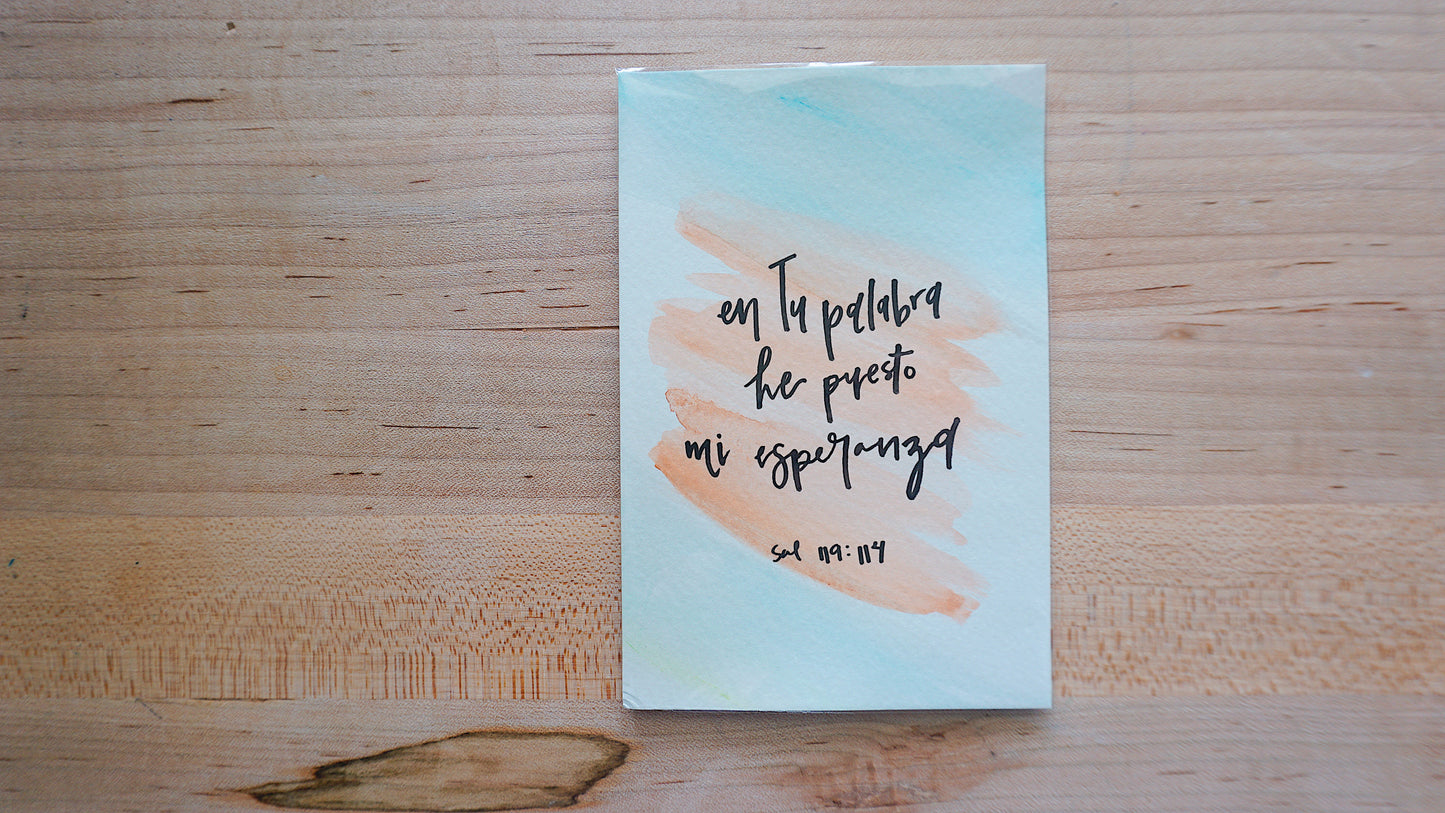 en Tu palabra
he puesto
mi esperanza
sal 119:114